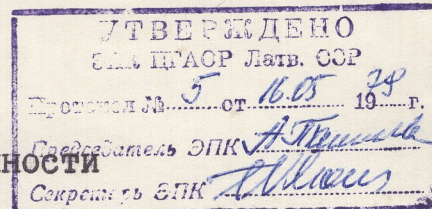 УТВЕРЖДЕНО
ЭПК ЦГАОР Латв. ССР
Протокол № 5 от 16.05 1979 г.
Председатель ЭПК
ности
Секретарь ЭПК